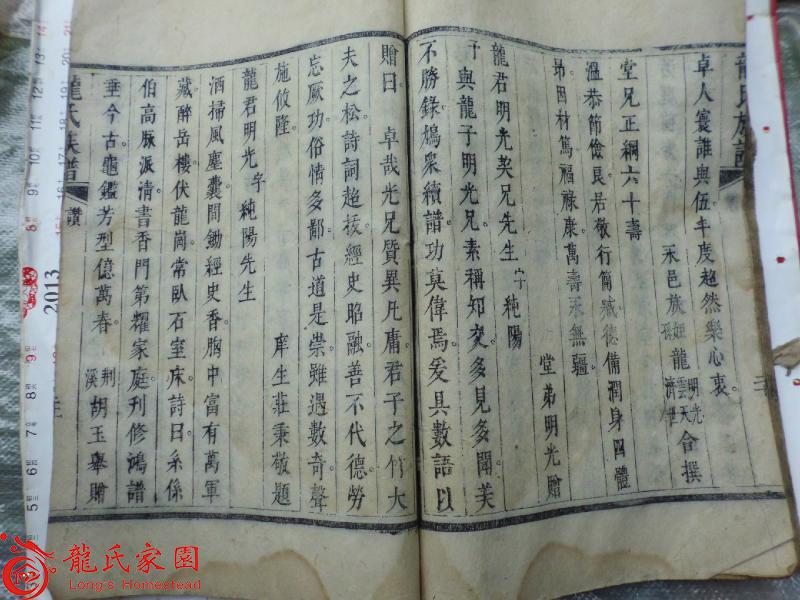 龍氏族譜
卓人寰誰與伍年度超然樂心衷
永邑族姪龍明光雲天合撰
堂兄正綱六十壽
溫恭節儉良居敬行簡誠德備潤身四體
昂因材篤福祿康萬壽永無疆
堂弟明光贈
龍君明光契兄先生字純陽
予與龍子明光兄素稱知交多見多聞美
不勝錄鳩衆續譜功莫偉焉爰具數語以
贈曰卓哉光兄質異凡庸君子之竹大
夫之松詩詞超拔經史昭融善不代德勞
忘厥功俗情多鄙古道是崇雖遇數奇聲
施攸隆
庠生莊秉敬題
龍君明光字純陽先生
酒掃風塵囊間鋤經史香胸中富有萬軍
藏醉岳樓伏龍崗常臥石室床詩曰系係
伯高脈派清書香門第耀家庭刊修鴻譜
垂今古龜鑑芳型億萬春
荆溪胡玉舉贈
龍氏族譜
讚
2013
龍氏家園
Long's Homestead